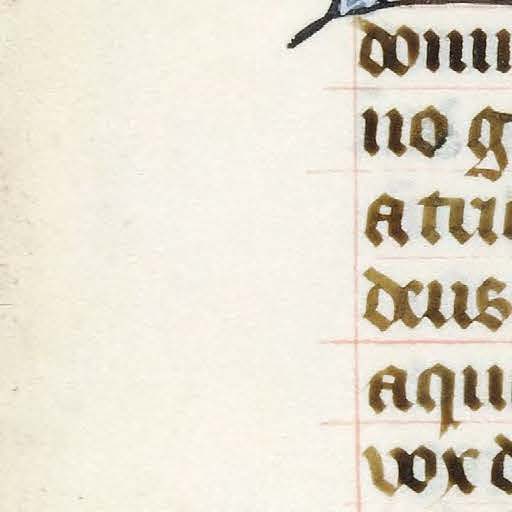 domi
no g
a tui
deus
aqua
vox d